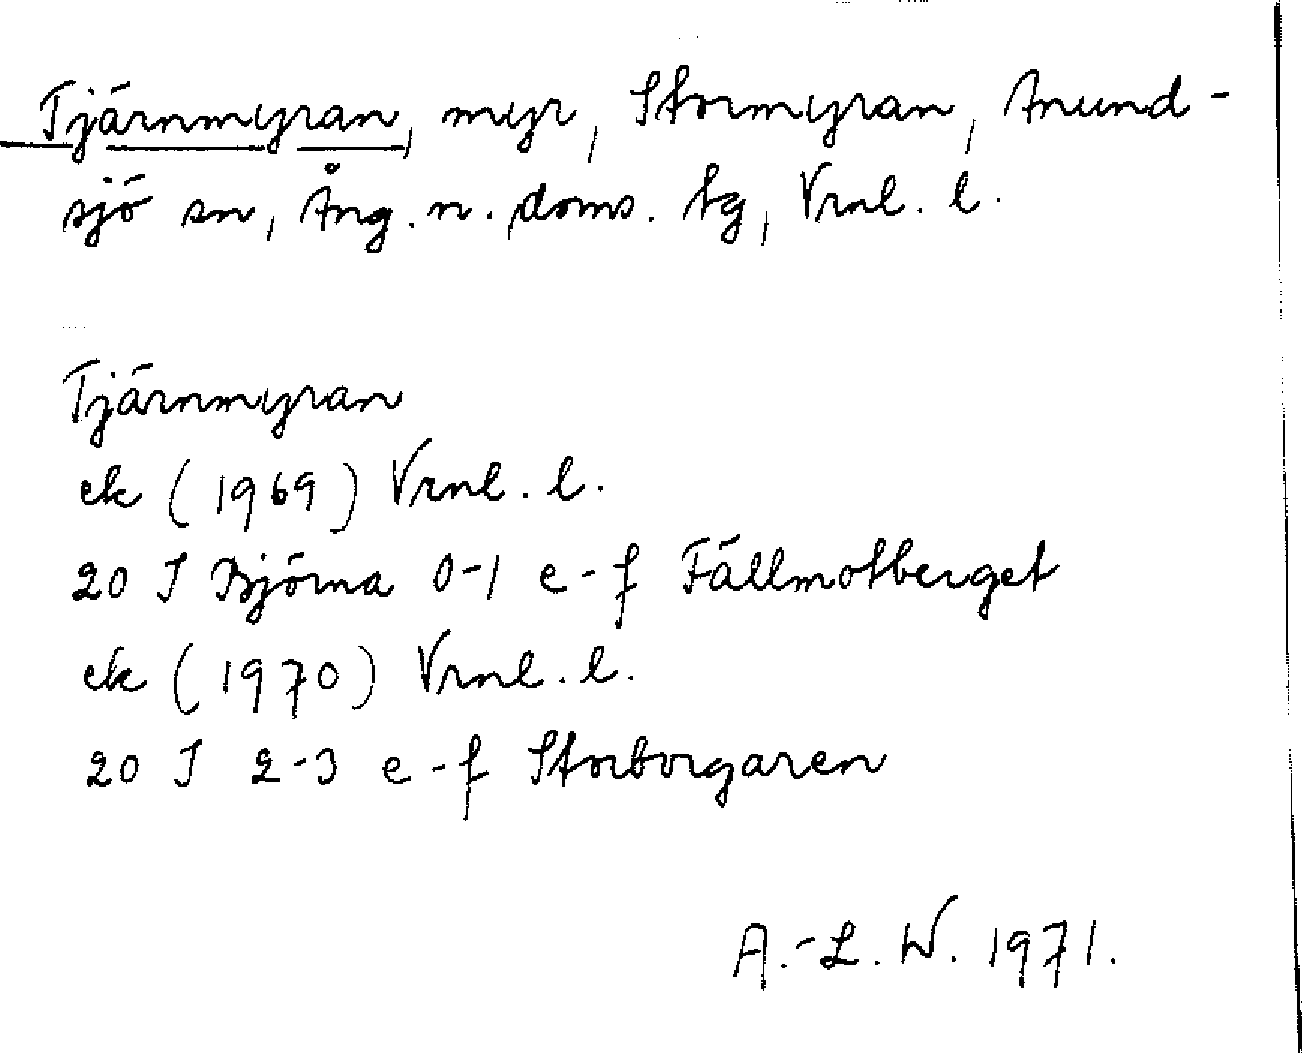 Tjärnmyran, myr, Stormyran, Anund-
sjö sn, Ång. n. doms. tg, Vrnl. l.
Tjärnmyran
ek (1969) Vrnl. l.
20 I Björna 0-1 e-f Fällmotberget
ek (1970) Vrnl. l.
20 I 2-3 e-f Storborgaren
A.-L. W. 1971.